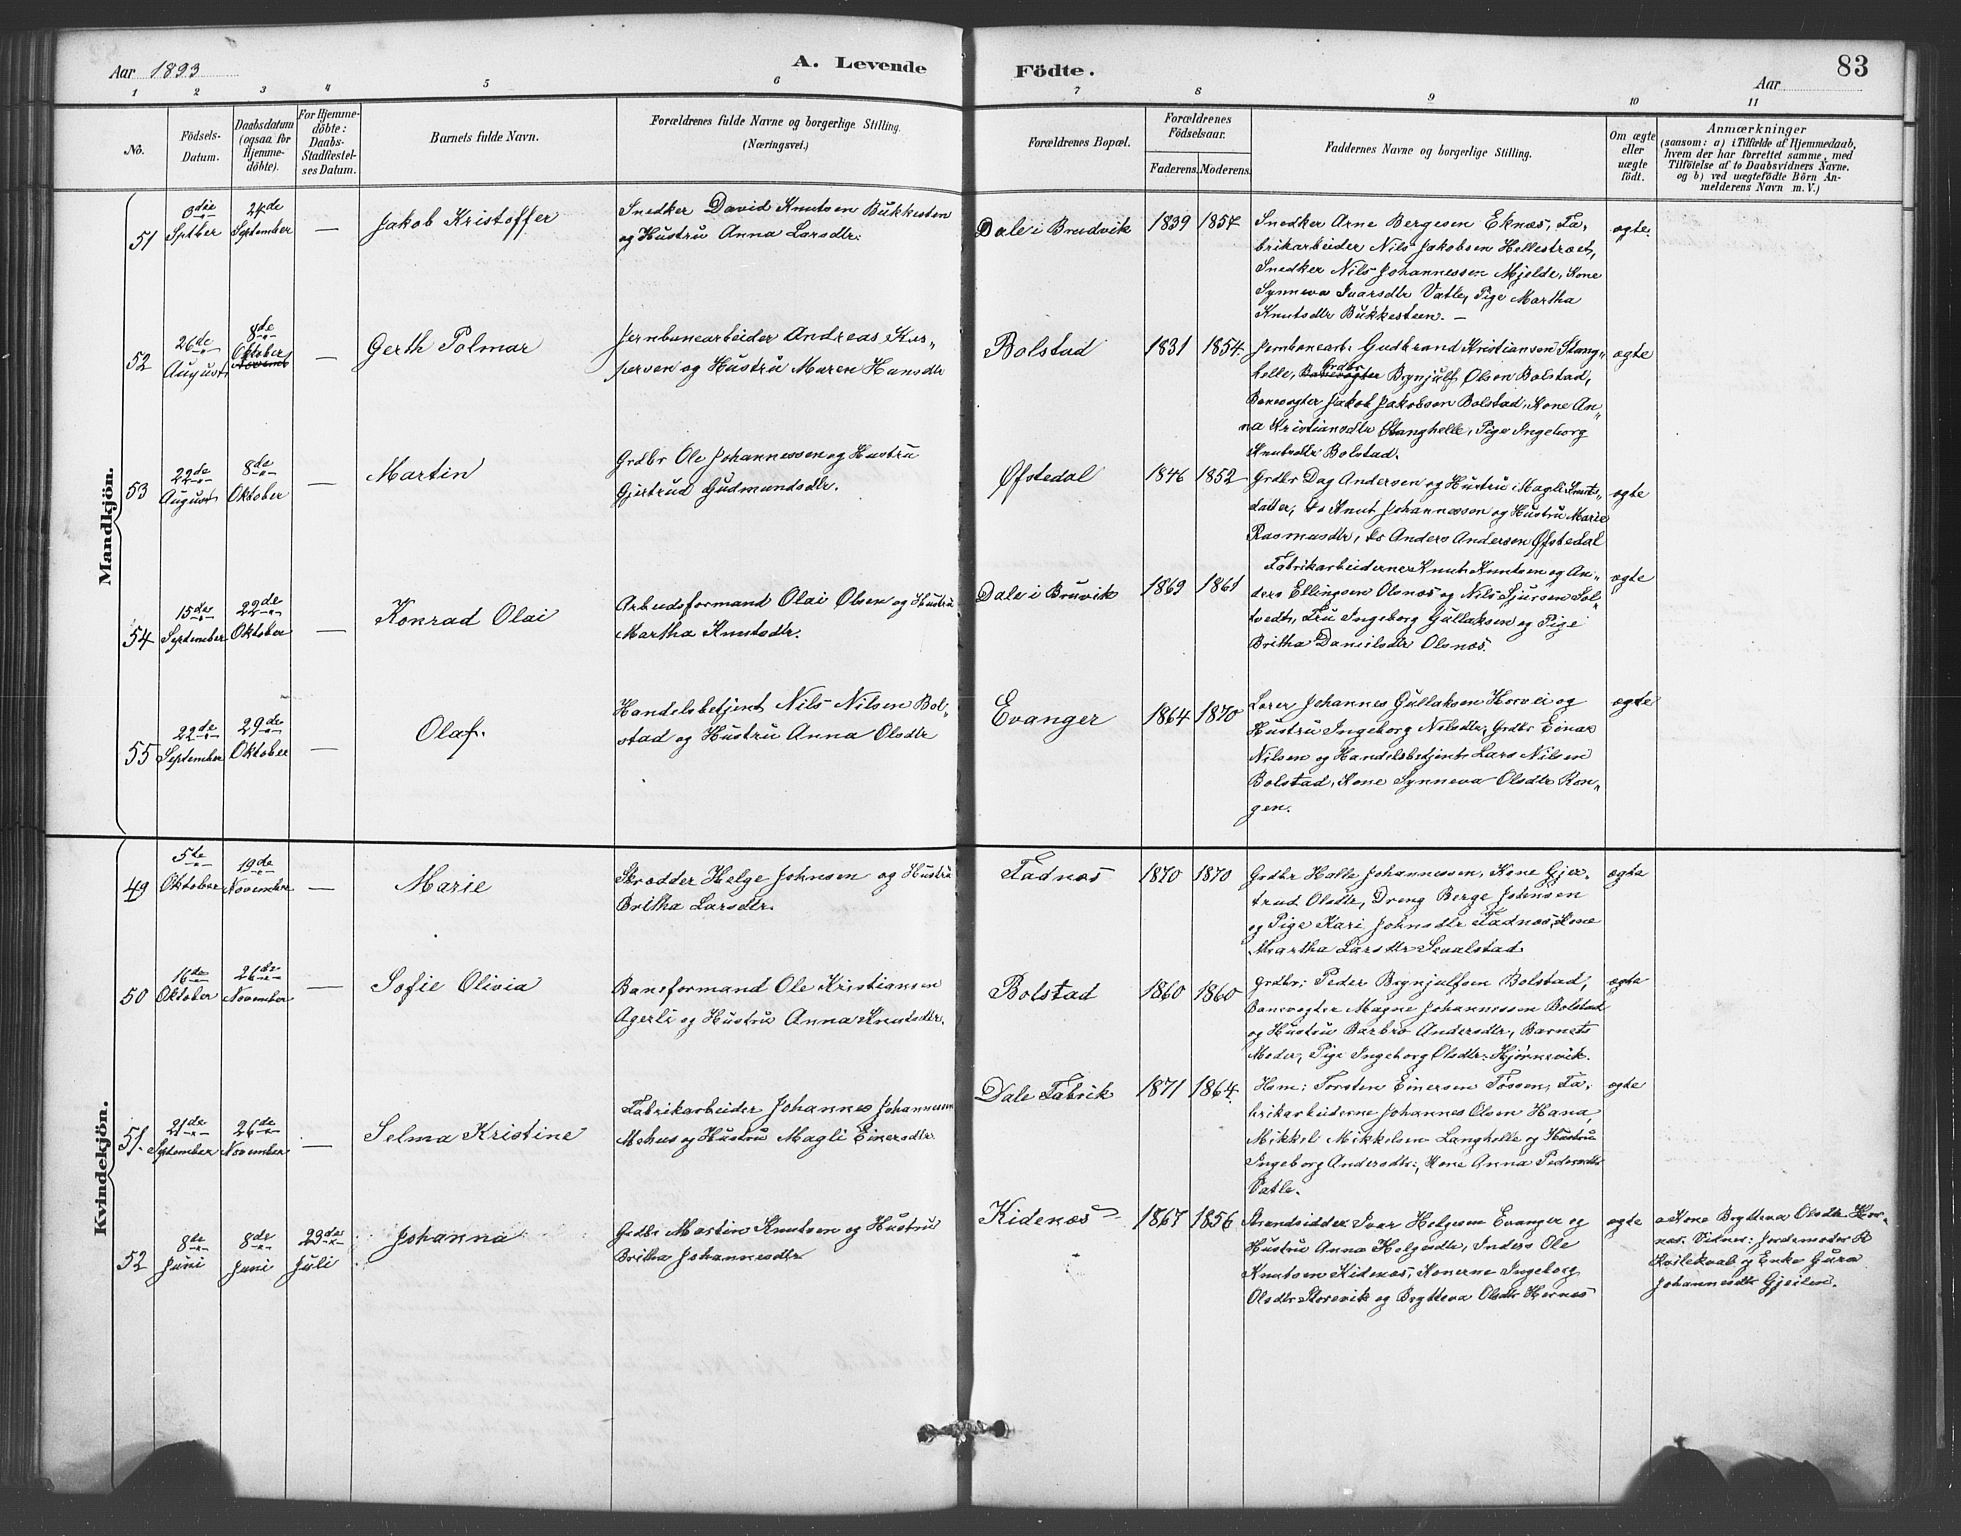 Aar 1893
A. Levende
Födte.
83
Aar
1 2 3 4 5 6 7 8 9 10 11
No.
Födsels-
Datum.
Daabsdatum
(ogsaa for
Hjemme-
döbte).
For Hjemme-
döbte:
Daabs-
Stadfæstel-
ses Datum.
Barnets fulde Navn.
Forældrenes fulde Navne og borgerlige Stilling.
(Næringsvei.)
Forældrenes Bopæl.
Forældrenes
Födselsaar.
Faderens. Moderens.
Faddernes Navne og borgerlige Stilling.
Om ægte
eller
uægte
födt.
Anmærkninger
(saasom: a) i Tilfælde af Hjemmedaab,
hvem der har forrettet samme, med
Tilföielse af to Daabsvidners Navne.
og b) ved uægtefödte Börn An-
melderens Navn m. V.)
Mandkjön.
51
Septber
24de
September
—
Jakob Kristoffer
Snedker David Knutsen Bukkesten
og Hustru Anna Larsdtr.
Dale i Brudvik
1839
1857
Snedker Arne Bergesen Eknæs, Fa-
brikarbeider Nils Jakobsen Hellestræt,
Snedker Nils Johannessen Mjelde, Kone
Synneva Ivarsdtr Vatle, Pige Martha
Knutsdtr Bukkesteen. —
ægte.
52
26de
August
8de
Oktober
—
Gerth Polmar
Jernbanearbeider Andreas Kas-
persen og Hustru Maren Hansdtr
Bolstad
1831
1854
Jernbanearb. Gudbrand Kristiansen Stang-
helle, Grdbr Brynjulf Olsen Bolstad,
Banevogter Jakob Jakobsen Bolstad, Kone An-
na Kristiansdtr Stanghelle, Pige Ingeborg
Knutsdtr Bolstad.
ægte
53
22de
August
8de
Oktober
—
Martin
Grdbr Ole Johannessen og Hustru
Gjertrud Gudmundsdtr.
Øfstedal
1846
1852
Grdbr Dag Andersen og Hustru Magli Knuts-
datter, Ds Knut Johannessen og Hustru Marie
Rasmusdtr, Ds Anders Andersen Øfstedal
ægte
54
15de
September
22de
Oktober
—
Konrad Olai
Arbeidsformand Olai Olsen og Hustru
Martha Knutsdtr.
Dale i Bruvik
1869
1861
Fabrikarbeiderne Knut Knutsen og An-
ders Ellingsen Olsnæs og Nils Sjursen Sol-
tvedt, Fru Ingeborg Gullaksen og Pige
Britha Danielsdtr Olsnæs.
ægte
55
22de
September
29de
Oktober
—
Olaf.
Handelsbetjent Nils Nilsen Bol-
stad og Hustru Anna Olsdtr
Evanger
1864
1870
Lærer Johannes Gullaksen Horvei og
Hustru Ingeborg Nilsdtr, Grdbr Einar
Nilsen og Handelsbetjent Lars Nilsen
Bolstad, Kone Synneva Olsdtr Ron-
gen.
ægte
Kvindekjön.
49
5te
Oktober
19de
November
—
Marie
Skrædder Helge Johnsen og Hustru
Britha Larsdtr.
Fadnæs
1870
1870
Grdbr Halle Johannessen, Kone Gjer-
trud Olsdtr, Dreng Berge Johnsen
og Pige Kari Johnsdtr Fadnæs, Kone
Martha Larsdtr Sevalstad
ægte
50
16de
Oktober
26de
November
—
Sofie Olivia
Baneformand Ole Kristiansen
Agerli og Hustru Anna Knutsdtr.
Bolstad
1860
1860
Grdbr: Peder Brynjulfsen Bolstad,
Banevogter Magne Johannessen Bolstad
og Hustru Barbro Andersdtr, Barnets
Moder, Pige Ingeborg Olsdtr Hjørnevik.
ægte
51.
21de
September
26de
November
—
Selma Kristine
Fabrikarbeider Johannes Johannessen
Mehus og Hustru Magli Einersdtr.
Dale Fabrik
1871
1864
Hsm: Torsten Einersen Fossen, Fa-
brikarbeiderne Johannes Olsen Hana,
Mikkel Mikkelsen Langhelle og Hustru
Ingeborg Andersdtr, Kone Anna Pedersdtr
Vatle.
ægte
52
8de
Juni
8de
Juni
23de
Juli
Johanna
Grdbr Martin Knutsen og Hustru
Britha Johannesdtr
Kidenæs
1867
1856
Strandsidder Ivar Helgesen Evanger og
Hustru Anna Helgesdtr, Inders Ole
Knutsen Kidenæs, Konerne Ingeborg
Olsdtr Storevik og Brytteva Olsdtr Hernæs
ægte
Kone Brytteva Olsdtr Her-
næs. Vidner: Jordemoder
Kvilekval og Enke Guro
Johannesdtr Gjeilen.